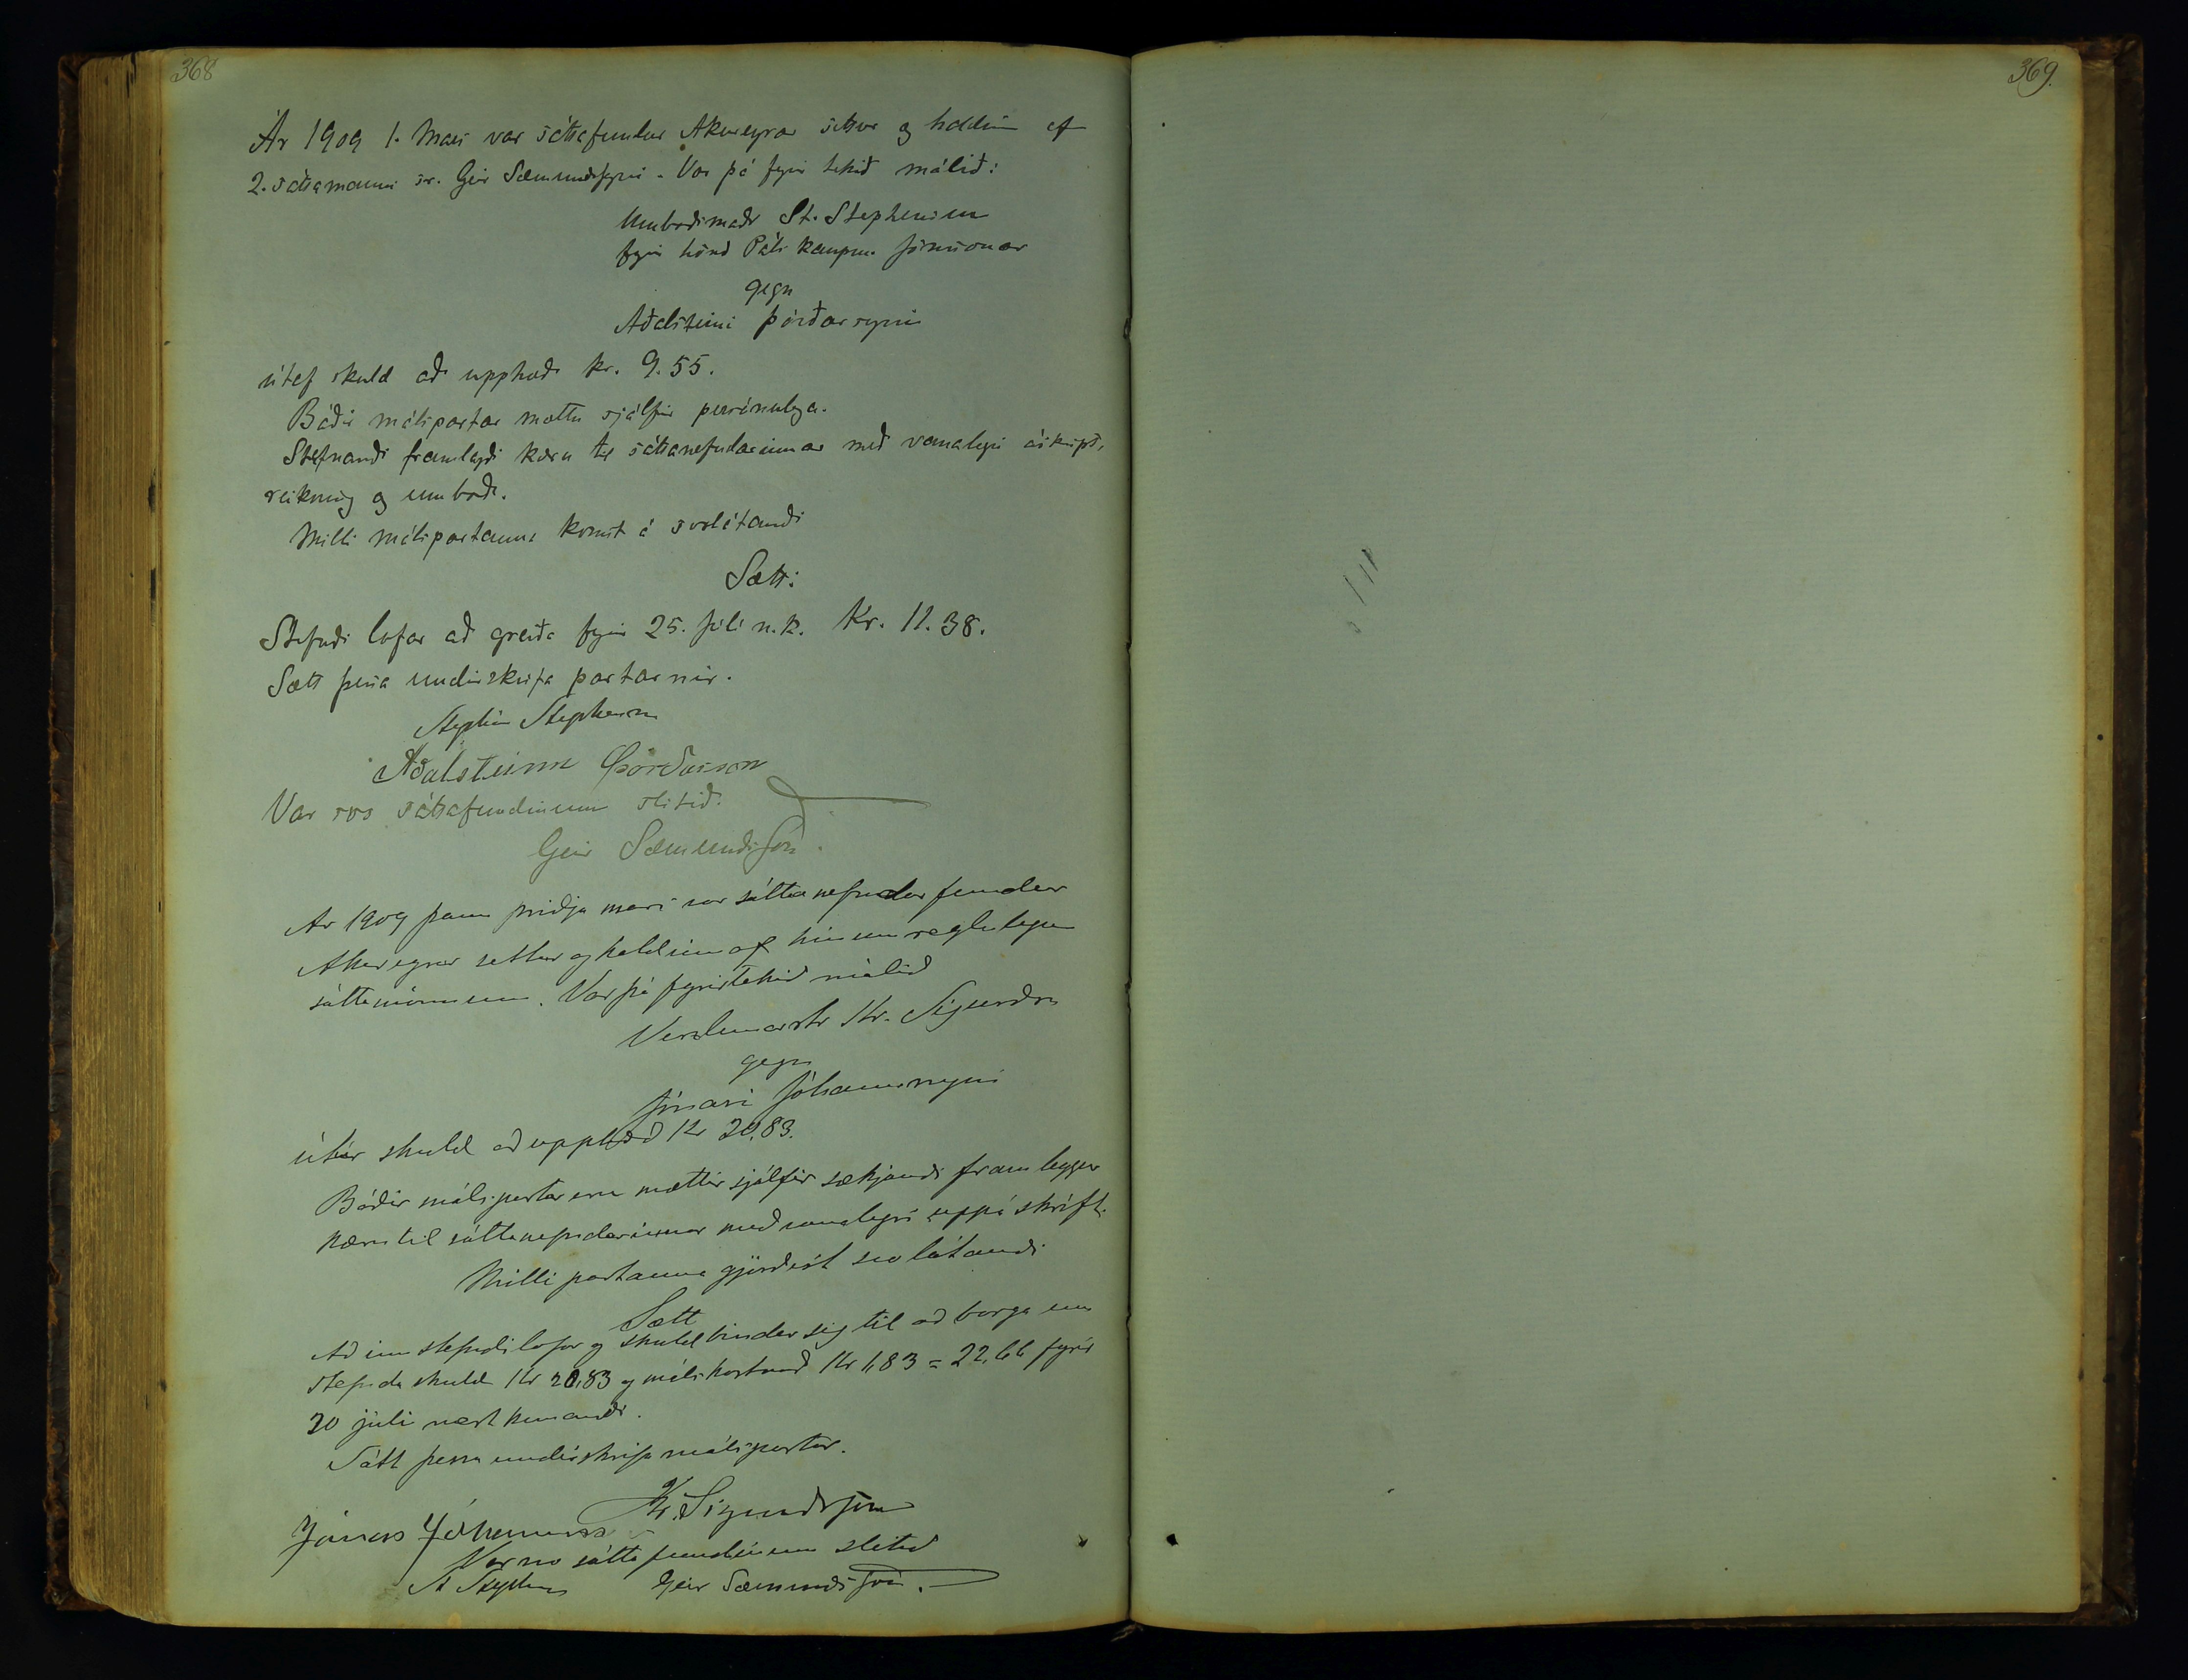 368
Ár 1909 1. Maí var sáttafundur Akureyrar settur og haldinn af
2. sáttamanni sr. Geir Sæmundssyni. Var þá fyrir tekið málið:
Umboðsmaðr St. Stephensen
fyrir hönd Páls kaupm. Jónssonar
gegn
Aðalsteini Þórðarsyni
útaf skuld að upphæð kr. 9.55.
Báðir málspartar mættu sjálfir persónulega.
Stefnandi framlagði kæru til sáttanefndarinnar með vanalegri áskript,
reikning og umboð.
Milli málspartanna komst á svolátandi
Sætt:
Stefndi lofar að greiða fyrir 25. júlí n.k. Kr. 11.38.
Sætt þessa undirskrifa partarnir.
Stephán Stephensen
Aðalsteinn Þórðarson
Var svo sáttafundinum slitið.
Geir Sæmundsson.
Ár 1909 þann þriðja maí var sáttanefndarfundur
Akureyrar settur og haldinn af hinum reglulegu
sáttamönnum. Var þá fyrirtekið málið
Verslunarstr Kr. Sigurðss
gegn
Jónasi Jóhannssyni
útaf skuld að upphæð Kr 20,83.
Báðir málspartar eru mættir sjálfir sækjandi framleggur
kæru til sáttanefndarinnar með vanalegri uppáskrift.
Milli partanna gjörðist svolátandi
Sætt
Að inn stefndi lofar og skuldbindur sig til að borga um
stefnda skuld Kr 20,83 og málskostnað Kr 1,83 = 22,66 fyrir
20 júli næstkomandi.
Sátt þessa undirskrifa málspartar.
Kr. Sigurðsson
Jónas Jóhannss
Var svo sáttafundinum slitið
St Stephensen Geir Sæmundsson.
369.